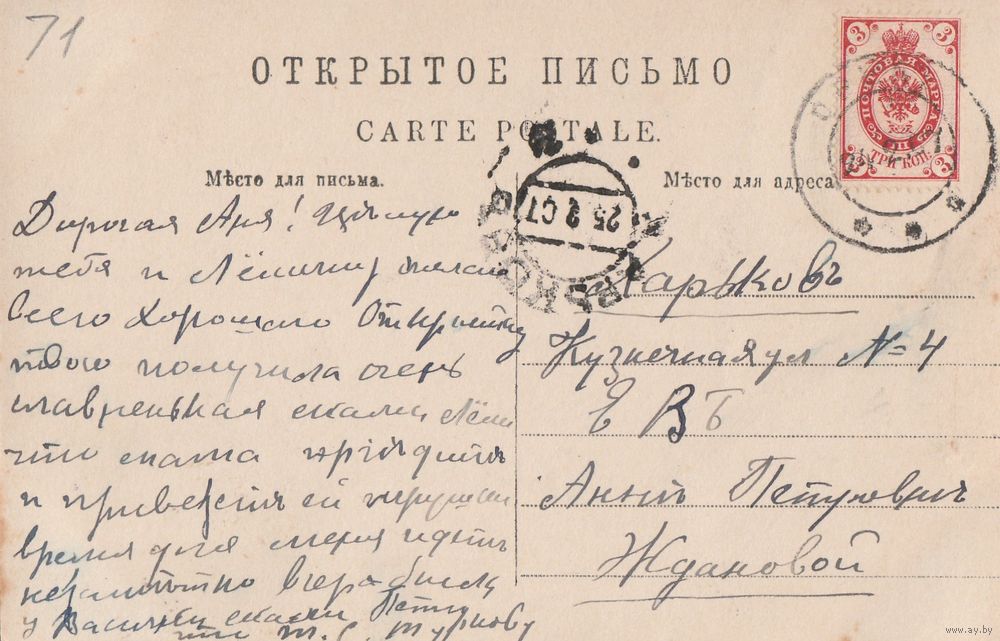 71
ОТКРЫТОЕ ПИСЬМО
CARTE POSTALE.
Мѣсто для письма.
Мѣсто для адреса
3 3
ПОЧТОВАЯ МАРКА
ТРИ КОП.
3 3
25 2 07
Дорогая Аня! Цѣлую
тебя и
всего хорошаго Открытку
твою получила очень
славненькая скажи
что мама приѣдитъ
и привезетъ ей
время для меня идетъ
незамѣтно вчера была
у скажи
что
Харьковъ
Кузнечная ул № 4
Е В Б
Аннѣ Петровнѣ
Ждановой
www.ay.by